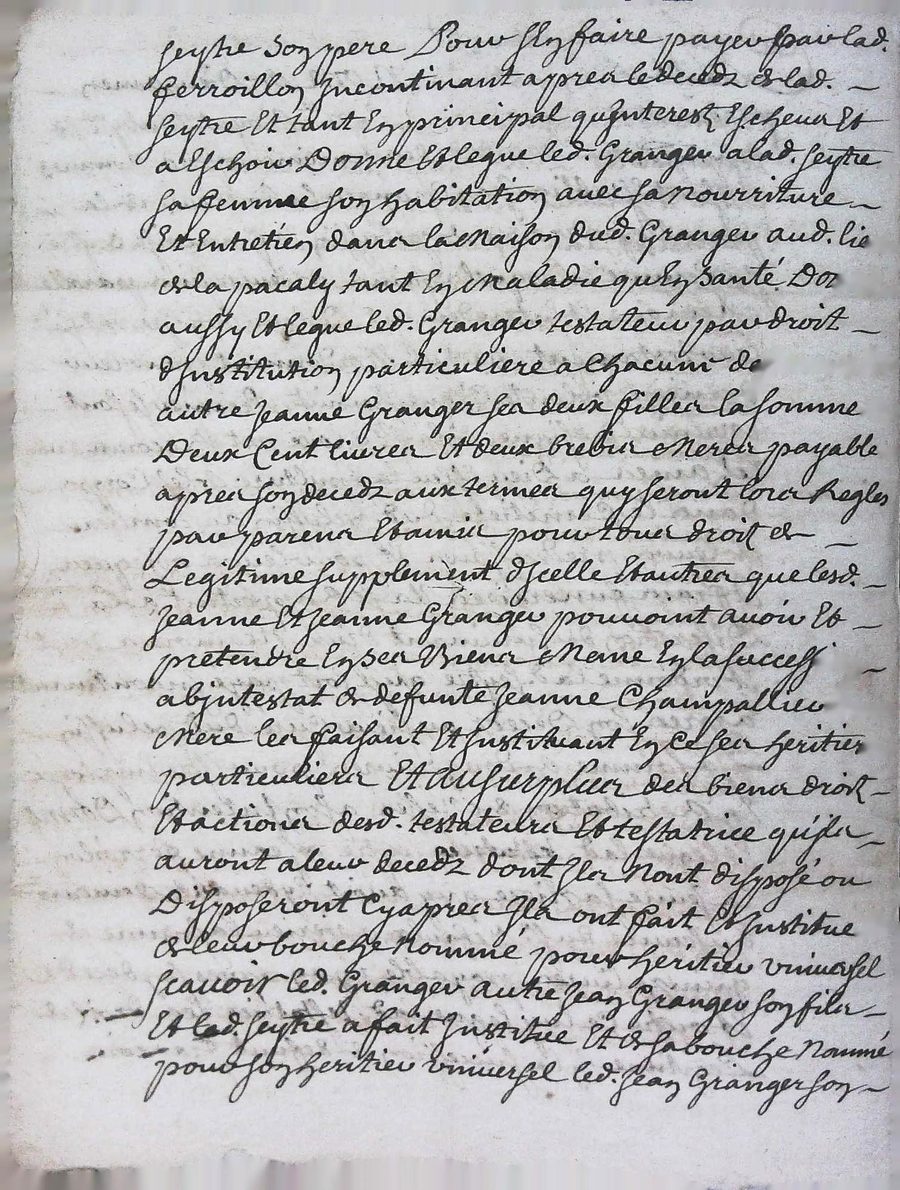 seytre son pere Pour s'en faire payer par lad.
ferroillon Incontinant apres le decedz de lad.
seytre Et tant En principal qu'interest Escheus Et
a Eschoir Donne Et legue led. Granger a lad. seytre
sa femme son habitation avec sa nourriture
Et Entretien dans la Maison dud. Granger aud. lie
de la pacaly tant En Maladie qu'En santé Don
aussy Et legue led. Granger testateur par droit
d'Institution particuliere a Chacune de
autre Jeanne Granger ses deux filles la somme
Deux Cent livres Et deux brebis Meres payable
apres son decedz aux termes quy seront lors Regles
par parens Et amis pour tous droit de
Legitime supplement d'Icelle Et autres que lesd.
Jeanne Et Jeanne Granger pouvoint avoir Et
pretendre En ses Biens Meme En la success
abjntestat de defunte Jeanne Champallier
Mere les faisant Et Instituant En Ce ses heritier
particuliers Et au surplus des biens droit
Et actions desd. testateurs Et testatrice qu'jls
auront a leur decedz dont Jls Nont disposé ou
Disposeront Cyapres Jls ont fait Et Institue
de leur bouche Nommé pour heritier vniversel
scavoir led. Granger autre Jean Granger son fils
Et lad. seytre a fait Institue Et de sa bouche Nommé
pour son heritier vniversel led. Jean Granger son